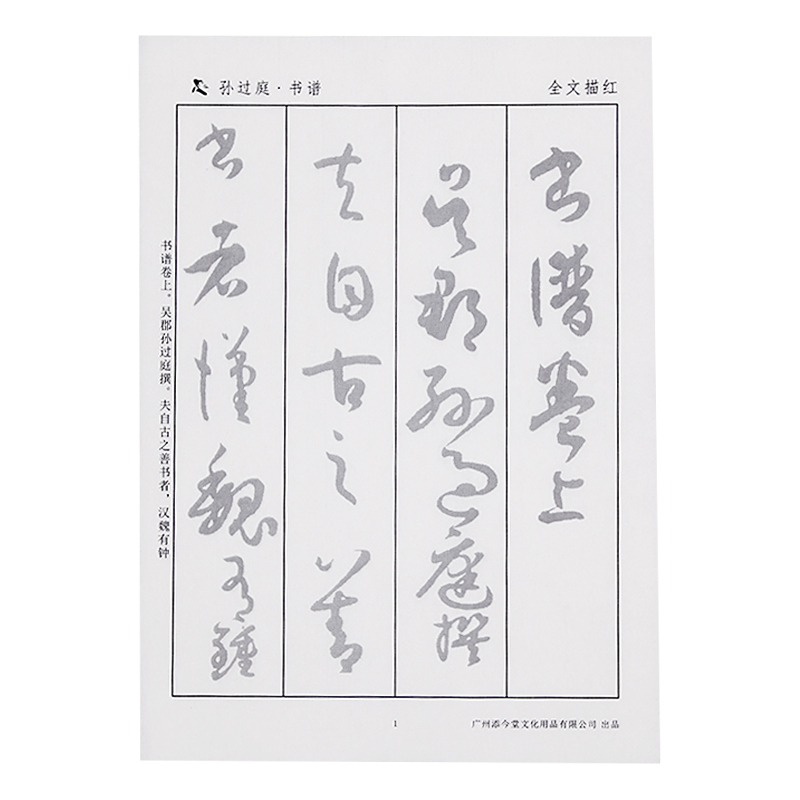 孙过庭·书谱
全文描红
书譜卷上
吴郡孙过庭撰
夫自古之善
书者漢魏有鍾
书谱卷上。吴郡孙过庭撰。夫自古之善书者，汉魏有钟
1
广州添今堂文化用品有限公司 出品